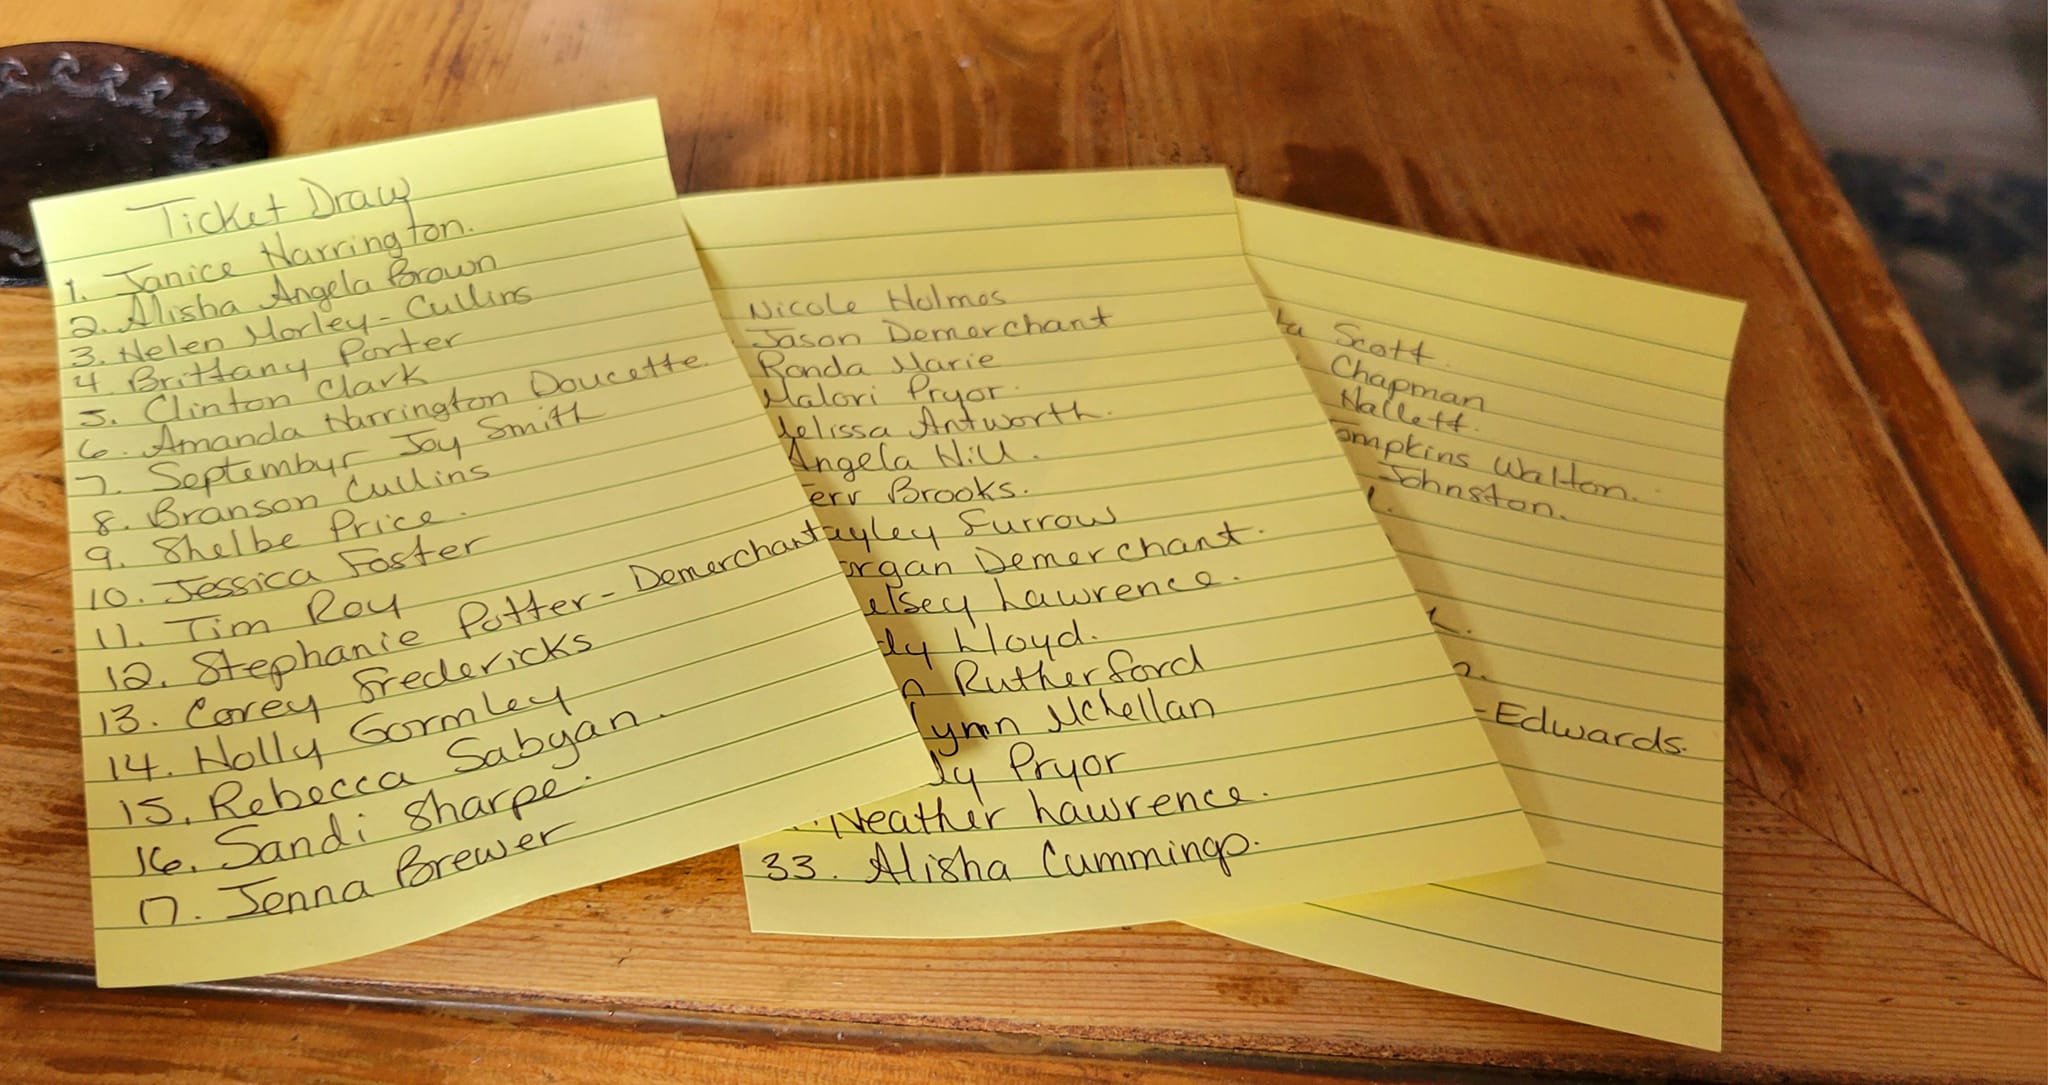 Ticket Draw
1. Janice Harrington.
2. Alisha Angela Brown
3. Helen Morley-Cullins
4 Brittany Porter
5. Clinton Clark
6. Amanda Harrington Doucette.
7. Septembyr Joy Smith
8. Branson Cullins
9. Shelbe Price.
10. Jessica Foster
11. Tim Roy
12. Stephanie Potter-Demerchant
13. Corey Fredericks
14. Holly Gormley
15. Rebecca Sabyan.
16. Sandi Sharpe.
17. Jenna Brewer
Nicole Holmes
Jason Demerchant
Ronda Marie
Malori Pryor.
Melissa Antworth.
Angela Hill.
Brooks.
Furrow
Demerchant.
Lawrence.
Lloyd.
Rutherford
McLellan
Pryor
Heather Lawrence.
33. Alisha Cummings.
Scott.
Chapman
Hallett.
Walton.
Johnston.
-Edwards.